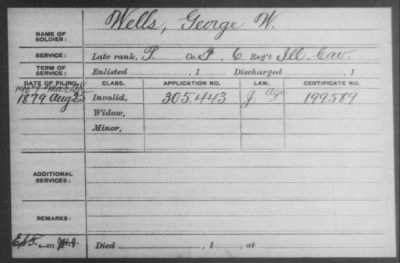 NAME OF SOLDIER: Wells, George W.
SERVICE: Late rank, P Co. F, 6 Reg't Ill. Cav
TERM OF SERVICE: Enlisted , 1 Discharged , 1
DATE OF FILING. CLASS. APPLICATION NO. LAW. CERTIFICATE NO.
1879 Aug 25 Invalid, 305.443 J Age 199589
Widow,
Minor,
ADDITIONAL SERVICES:
REMARKS:
Died , 1 , at